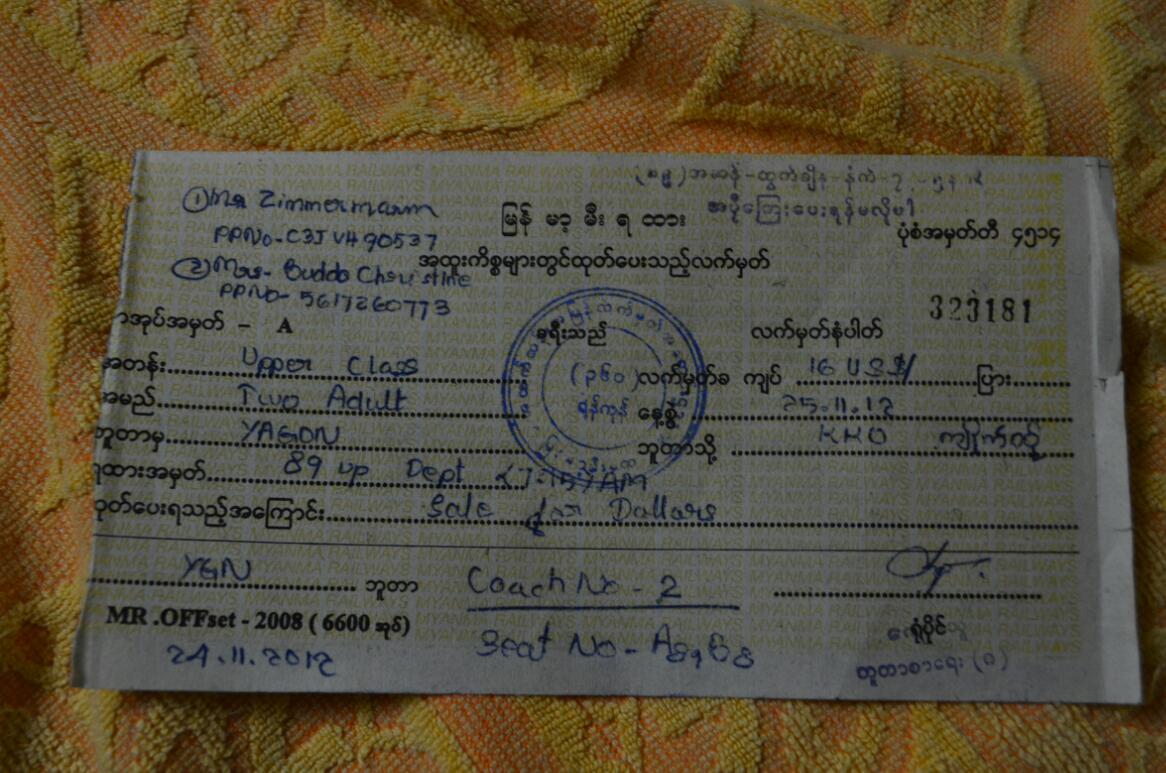 ① Mr Zimmermann
PPNo-C3JV490537
② Mrs- Budde Christine
PPNO- 5617260773
မြန် မာ့ မီး ရ ထား
အပိုကြေးပေးရန်မလိုပါ
ပုံစံအမှတ်တီ ၄၅၁၄
အထူးကိစ္စများတွင်ထုတ်ပေးသည့်လက်မှတ်
323181
အုပ်အမှတ် - A
ခရီးသည်
လက်မှတ်နံပါတ်
အတန်း Upper Class
လက်မှတ်ခ ကျပ် 16 US$ ပြား
အမည် Two Adult
ရန်ကုန်
နေ့စွဲ 25.11.12
ဘူတာမှ YAGON
ဘူတာသို့ KKO ကျိုက်ထို
ရထားအမှတ် 89 up Dept
ထုတ်ပေးရသည့်အကြောင်း Sale for Dollars
YGN ဘူတာ
Coach No - 2
MR .OFFset - 2008 ( 6600 အုပ်)
24.11.2012
Seat No - A8, B8